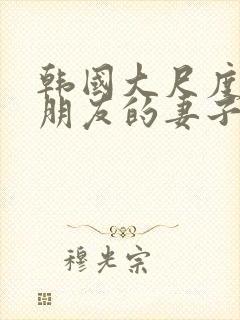 韩國大尺度
朋友的妻子
穆光宗